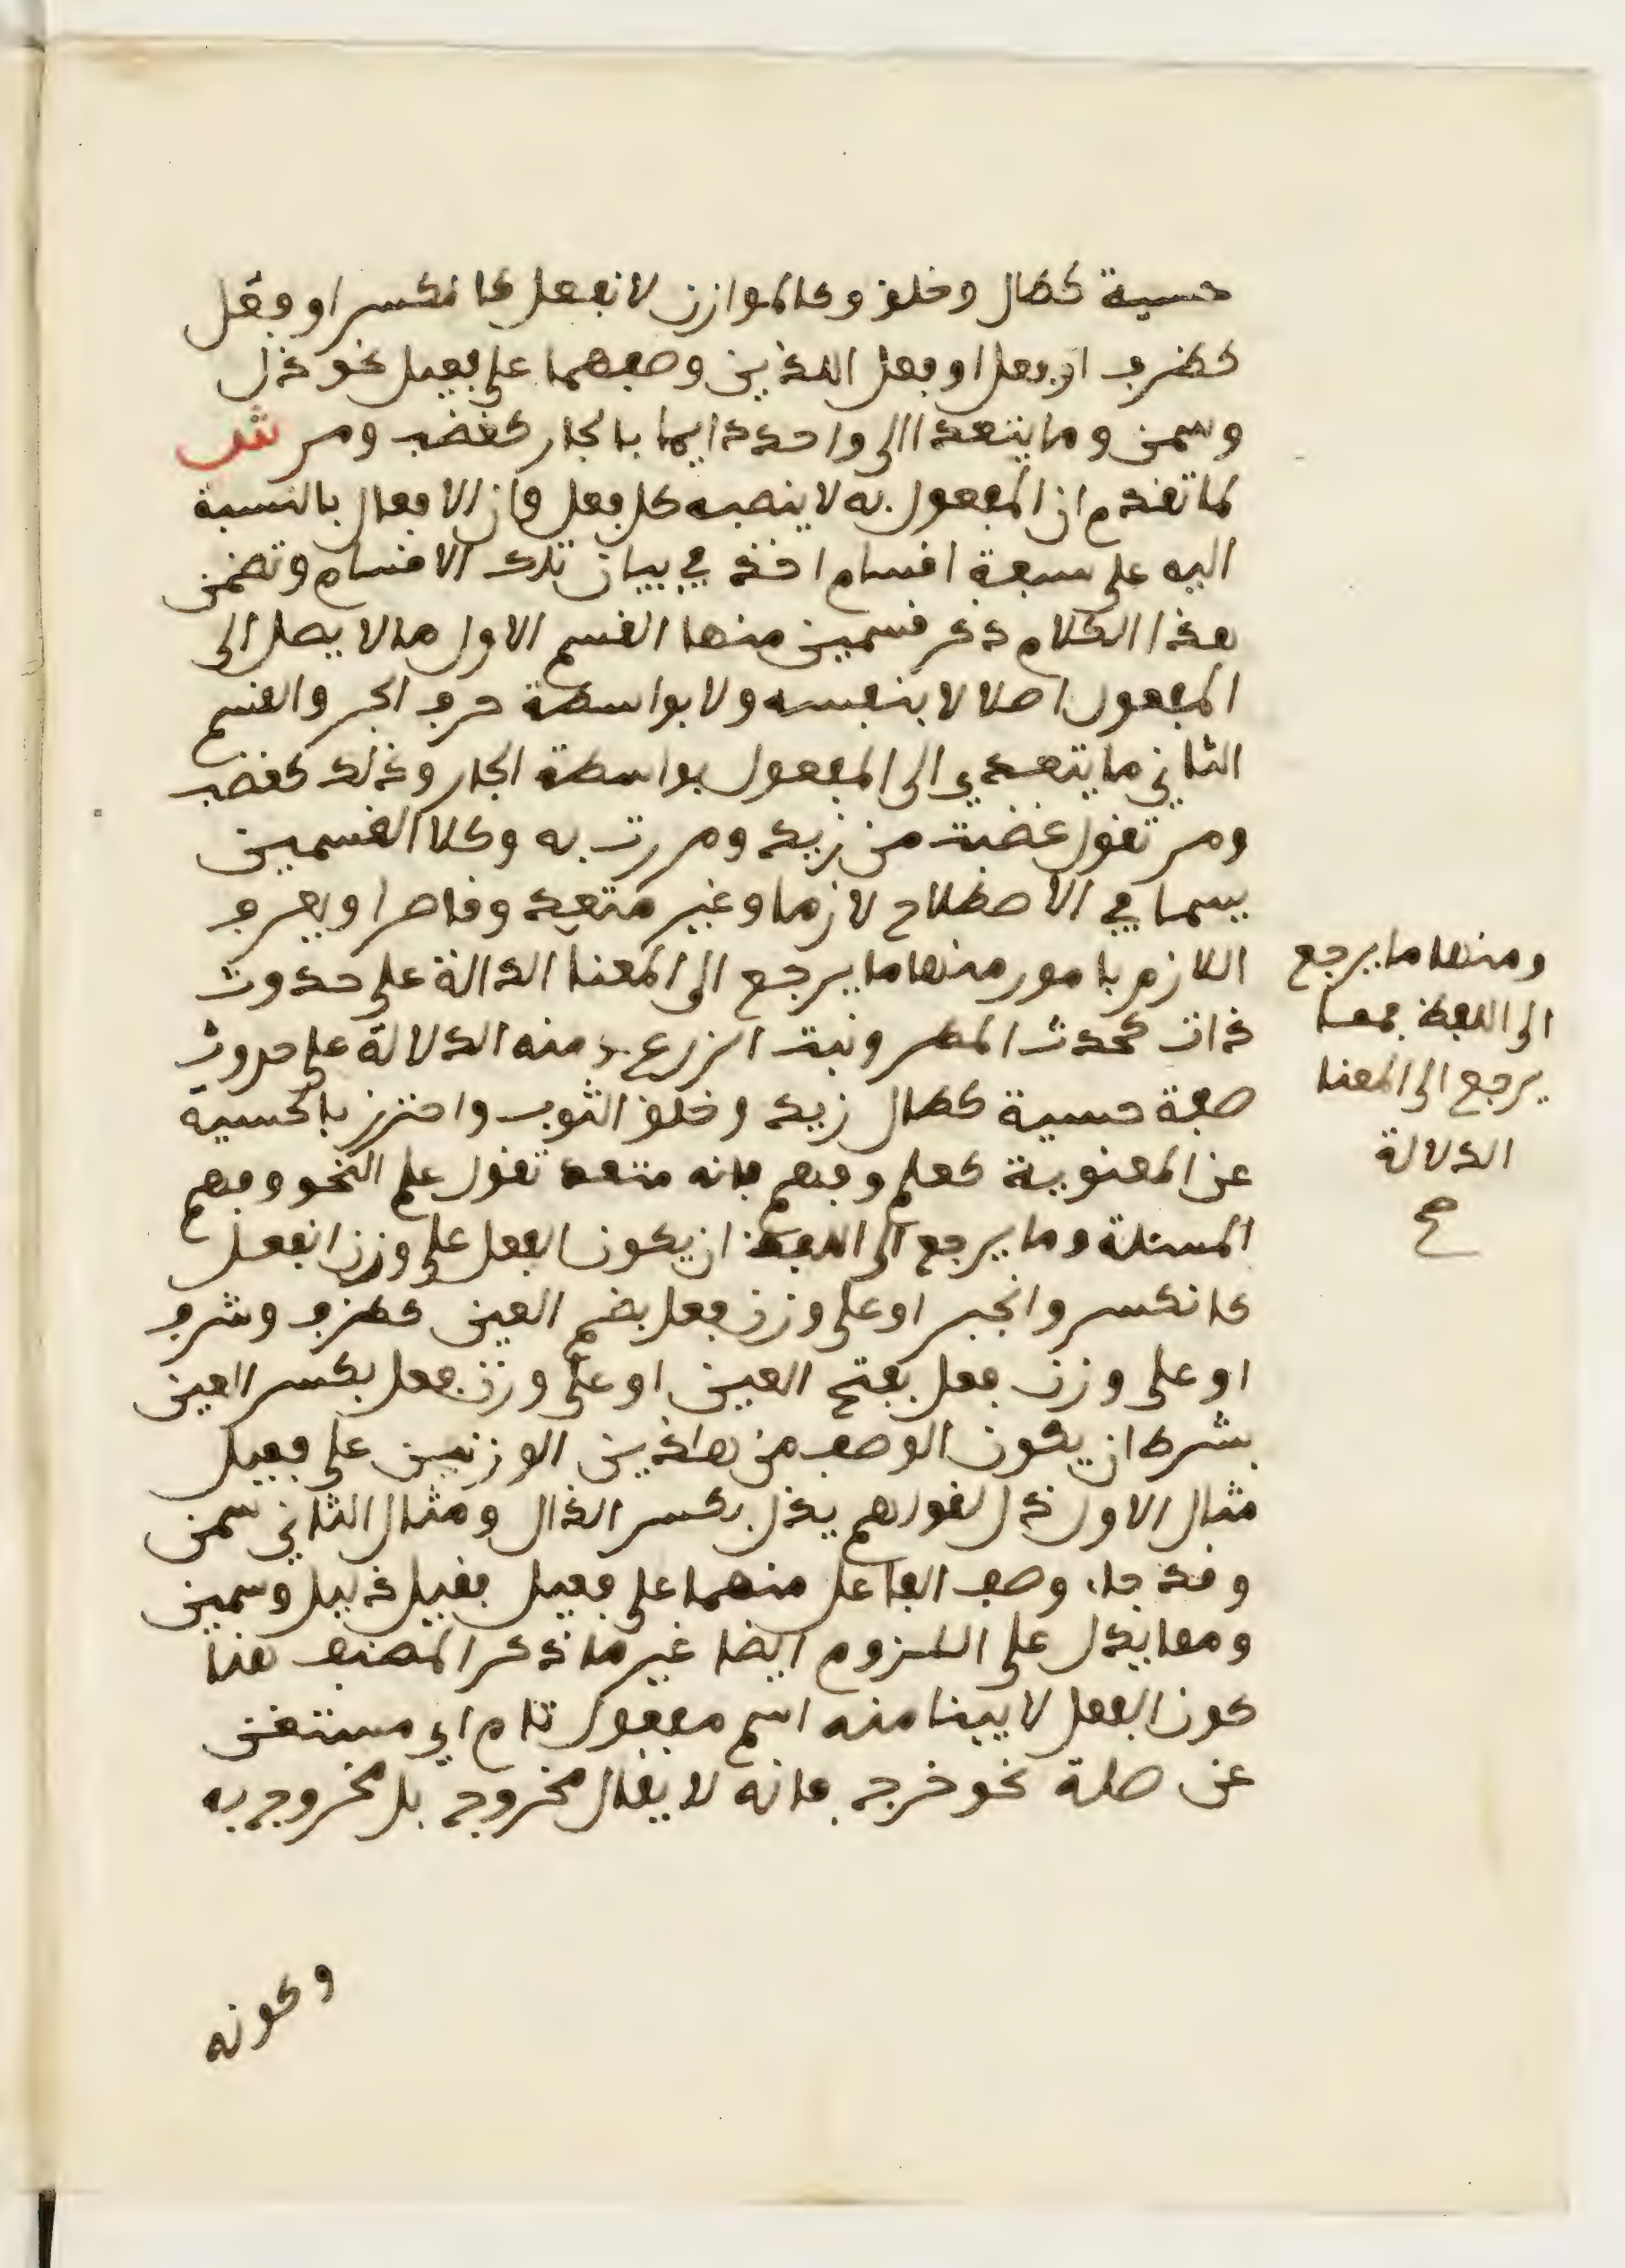 حسية كطال وخلق وكالموازن لانفعل كانكسر او فعل
كظرف او فعل او فعل اللذين وصفهما على فعيل نحو ذل
وسمن وما يتعدا الى واحد دايما بالجار كغضب ومر ش
لما تقدم ان المفعول به لا ينصبه كل فعل وان الافعال بالنسبة
اليه على سبعة اقسام اخذ في بيان تلك الاقسام وتضمن
هذا الكلام ذكر قسمين منها القسم الاول ما لا يصل الى
المفعول اصلا لا بنفسه ولا بواسطة حرف الجر والقسم
الثاني ما يتعدي الى المفعول بواسطة الجار وذلك كغضب
ومر تقول غضبت من زيد ومررت به وكلا القسمين
يسما في الاصطلاح لازما وغير متعد وقاصرا ويعرف
اللازم بامور منها ما يرجع الى المعنا الدالة على حدوث
ذات كحدث المطر ونبت الزرع ومنه الدلالة على حدوث
صفة حسية كطال زيد وخلق الثوب واحترز بالحسية
عن المعنوية كعلم وفهم فانه متعد تقول علم النحو وفهم
المسئلة وما يرجع الى اللفظ ان يكون الفعل على وزن انفعل
كانكسر وانجبر او على وزن فعل بضم العين كظرف وشرف
او على وزن فعل بفتح العين او على وزن فعل بكسر العين
بشرط ان يكون الوصف من هاذين الوزنين على فعيل
مثال الاول ذل لقولهم يذل بكسر الذال ومثال الثاني سمن
وقد جاء وصف الفاعل منهما على فعيل فقيل ذليل وسمين
ومما يدل على اللزوم ايضا غير ما ذكر المصنف هنا
كون الفعل لا يبنا منه اسم مفعول تام اي مستغن
عن صلة نحو خرج فانه لا يقال مخروج بل مخروج به
وكونه
ومنها ما يرجع
الى اللفظ فمما
يرجع الى المعنا
الدلالة
صح